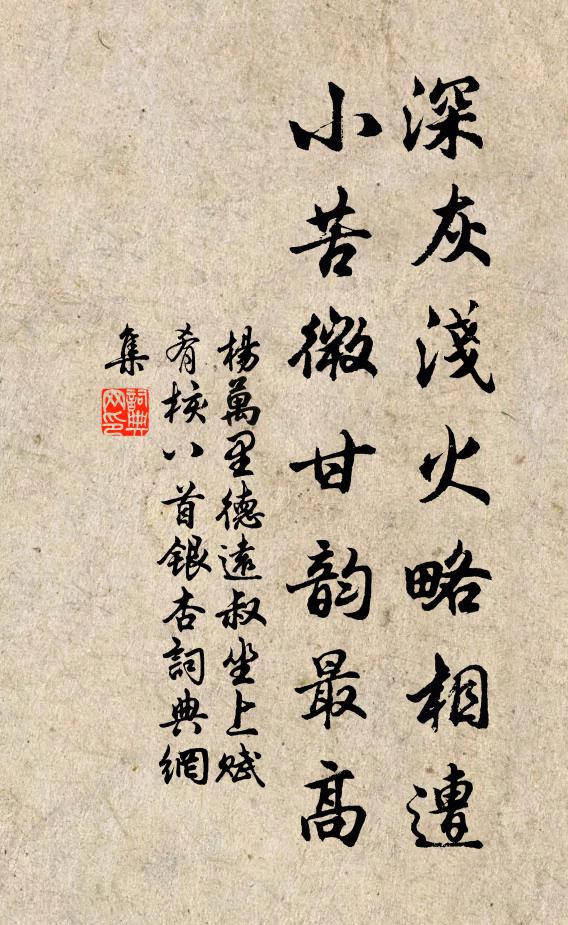 深灰淺火略相遭
小苦微甘韵最高
楊萬里德遠叔坐上賦
肴核八首銀杏詞典網
集
詞典
网印